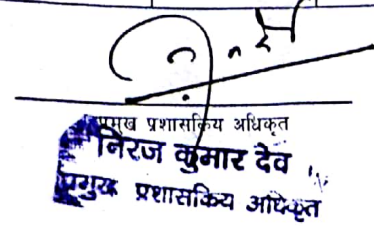 प्रमुख प्रशासकिय अधिकृत
निरज कुमार देव
प्रमुख प्रशासकिय अधिकृत